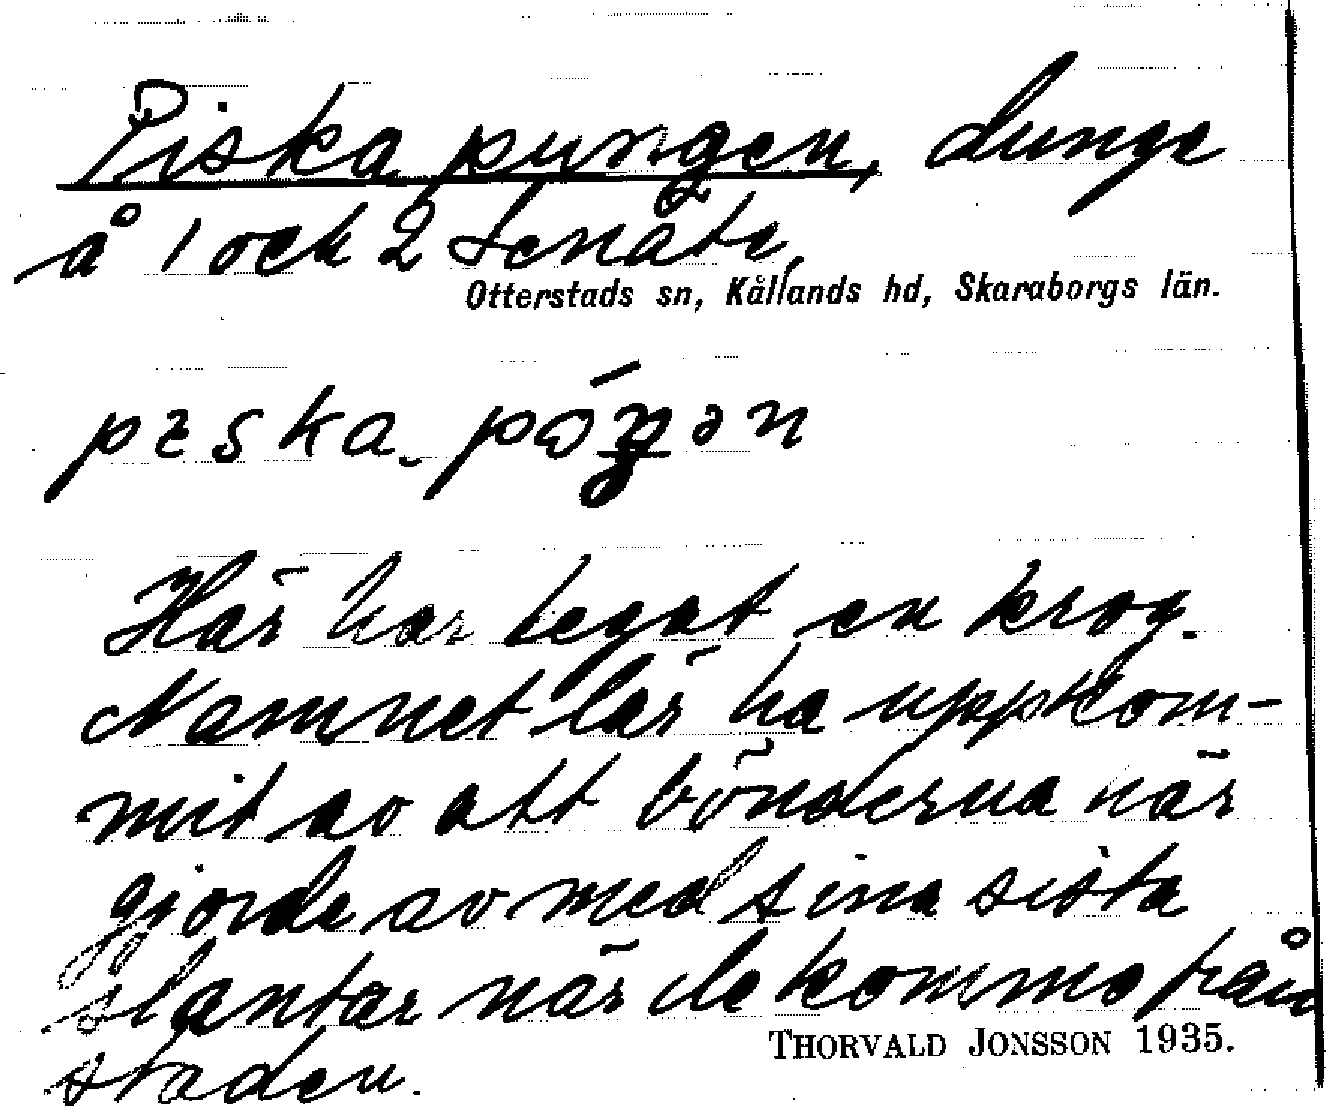 Piska pungen, dunge
å 1 och 2 Senäte,
Otterstads sn, Kållands hd, Skaraborgs län.
Här har legat en krog.
Namnet lär ha uppkom-
mit av att bönderna här
gjorde av med sina sista
slantar när de kommo från
staden.
THORVALD JONSSON 1935.